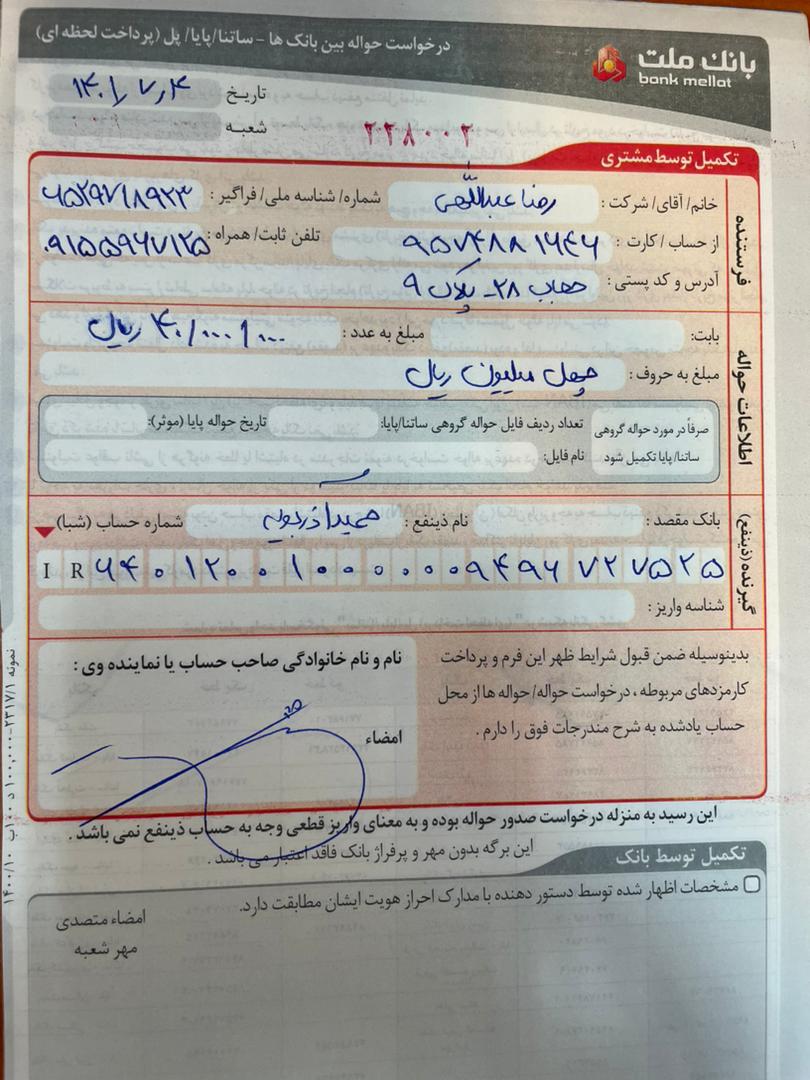 درخواست حواله بین بانک ها - ساتنا/پایا/ پل (پرداخت لحظه ای)
بانک ملت
bank mellat
تاریخ ۱۴۰۱/۷/۴
شعبه
۲۲۸۰۰۲
تکمیل توسط مشتری
فرستنده
خانم/ آقای/ شرکت : رضا عبداللهی شماره/ شناسه ملی/ فراگیر : ۶۵۲۹۷۱۸۹۲۳
از حساب/ کارت : ۹۵۷۴۸۸۱۶۴۶ تلفن ثابت/ همراه : ۰۹۱۵۵۹۶۷۱۲۵
آدرس و کد پستی : ۲۸ - پلاک ۹
اطلاعات حواله
بابت: مبلغ به عدد : ۴۰/۰۰۰/۰۰۰ ریال
مبلغ به حروف : چهل میلیون ریال
صرفاً در مورد حواله گروهی تعداد ردیف فایل حواله گروهی ساتنا/پایا: تاریخ حواله پایا (موثر):
ساتنا/ پایا تکمیل شود نام فایل:
گیرنده (ذینفع)
بانک مقصد : نام ذینفع : شماره حساب (شبا)
I R ۶۴۰۱۲۰۰۱۰۰۰۰۰۰۹۴۹۶۷۲۷۵۲۵
شناسه واریز :
بدینوسیله ضمن قبول شرایط ظهر این فرم و پرداخت
کارمزدهای مربوطه ، درخواست حواله/ حواله ها از محل
حساب یادشده به شرح مندرجات فوق را دارم .
نام و نام خانوادگی صاحب حساب یا نماینده وی :
امضاء
این رسید به منزله درخواست صدور حواله بوده و به معنای واریز قطعی وجه به حساب ذینفع نمی باشد .
این برگه بدون مهر و پرفراژ بانک فاقد اعتبار می باشد .
تکمیل توسط بانک
مشخصات اظهار شده توسط دستور دهنده با مدارک احراز هویت ایشان مطابقت دارد.
امضاء متصدی
مهر شعبه
نمونه ۲۳۱۷/۱-۱۰۰,۰۰۰ د ۱۰۰ب ۱۴۰۰/۱۰